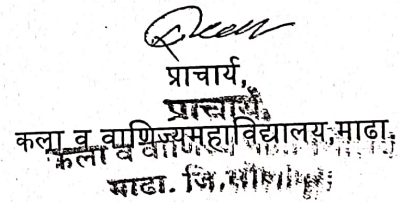 प्राचार्य,
प्राचार्य,
कला व वाणिज्यमहाविद्यालय,माढा.
कला व वाणिज्य
माढा. जि.सोलापूर